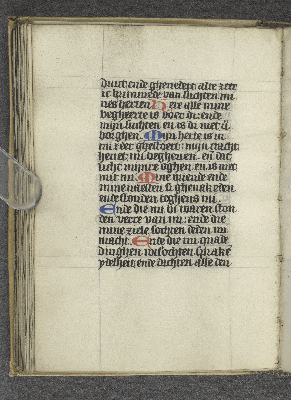 druct ende ghenedert alte zeer
ic brimmede van suchten mi
nes herten Here alle mine
begheerte is voer di: ende
mijn suchten en is di niet v
borghen. Mijn herte is in
mi zeer ghestoert: mijn cracht
heuet mi beghenen: en dat
licht mijnre oghen en is niet
mit mi Mine vriende ende
mine naesten
ende stonden teghens mi
Ende die mi bi waren ston
den verre van mi: ende die
mine ziele sochten deden mi
macht. Ende die mi quade
dinghen wtsochten sprake
ydelheit: ende dachten alle den